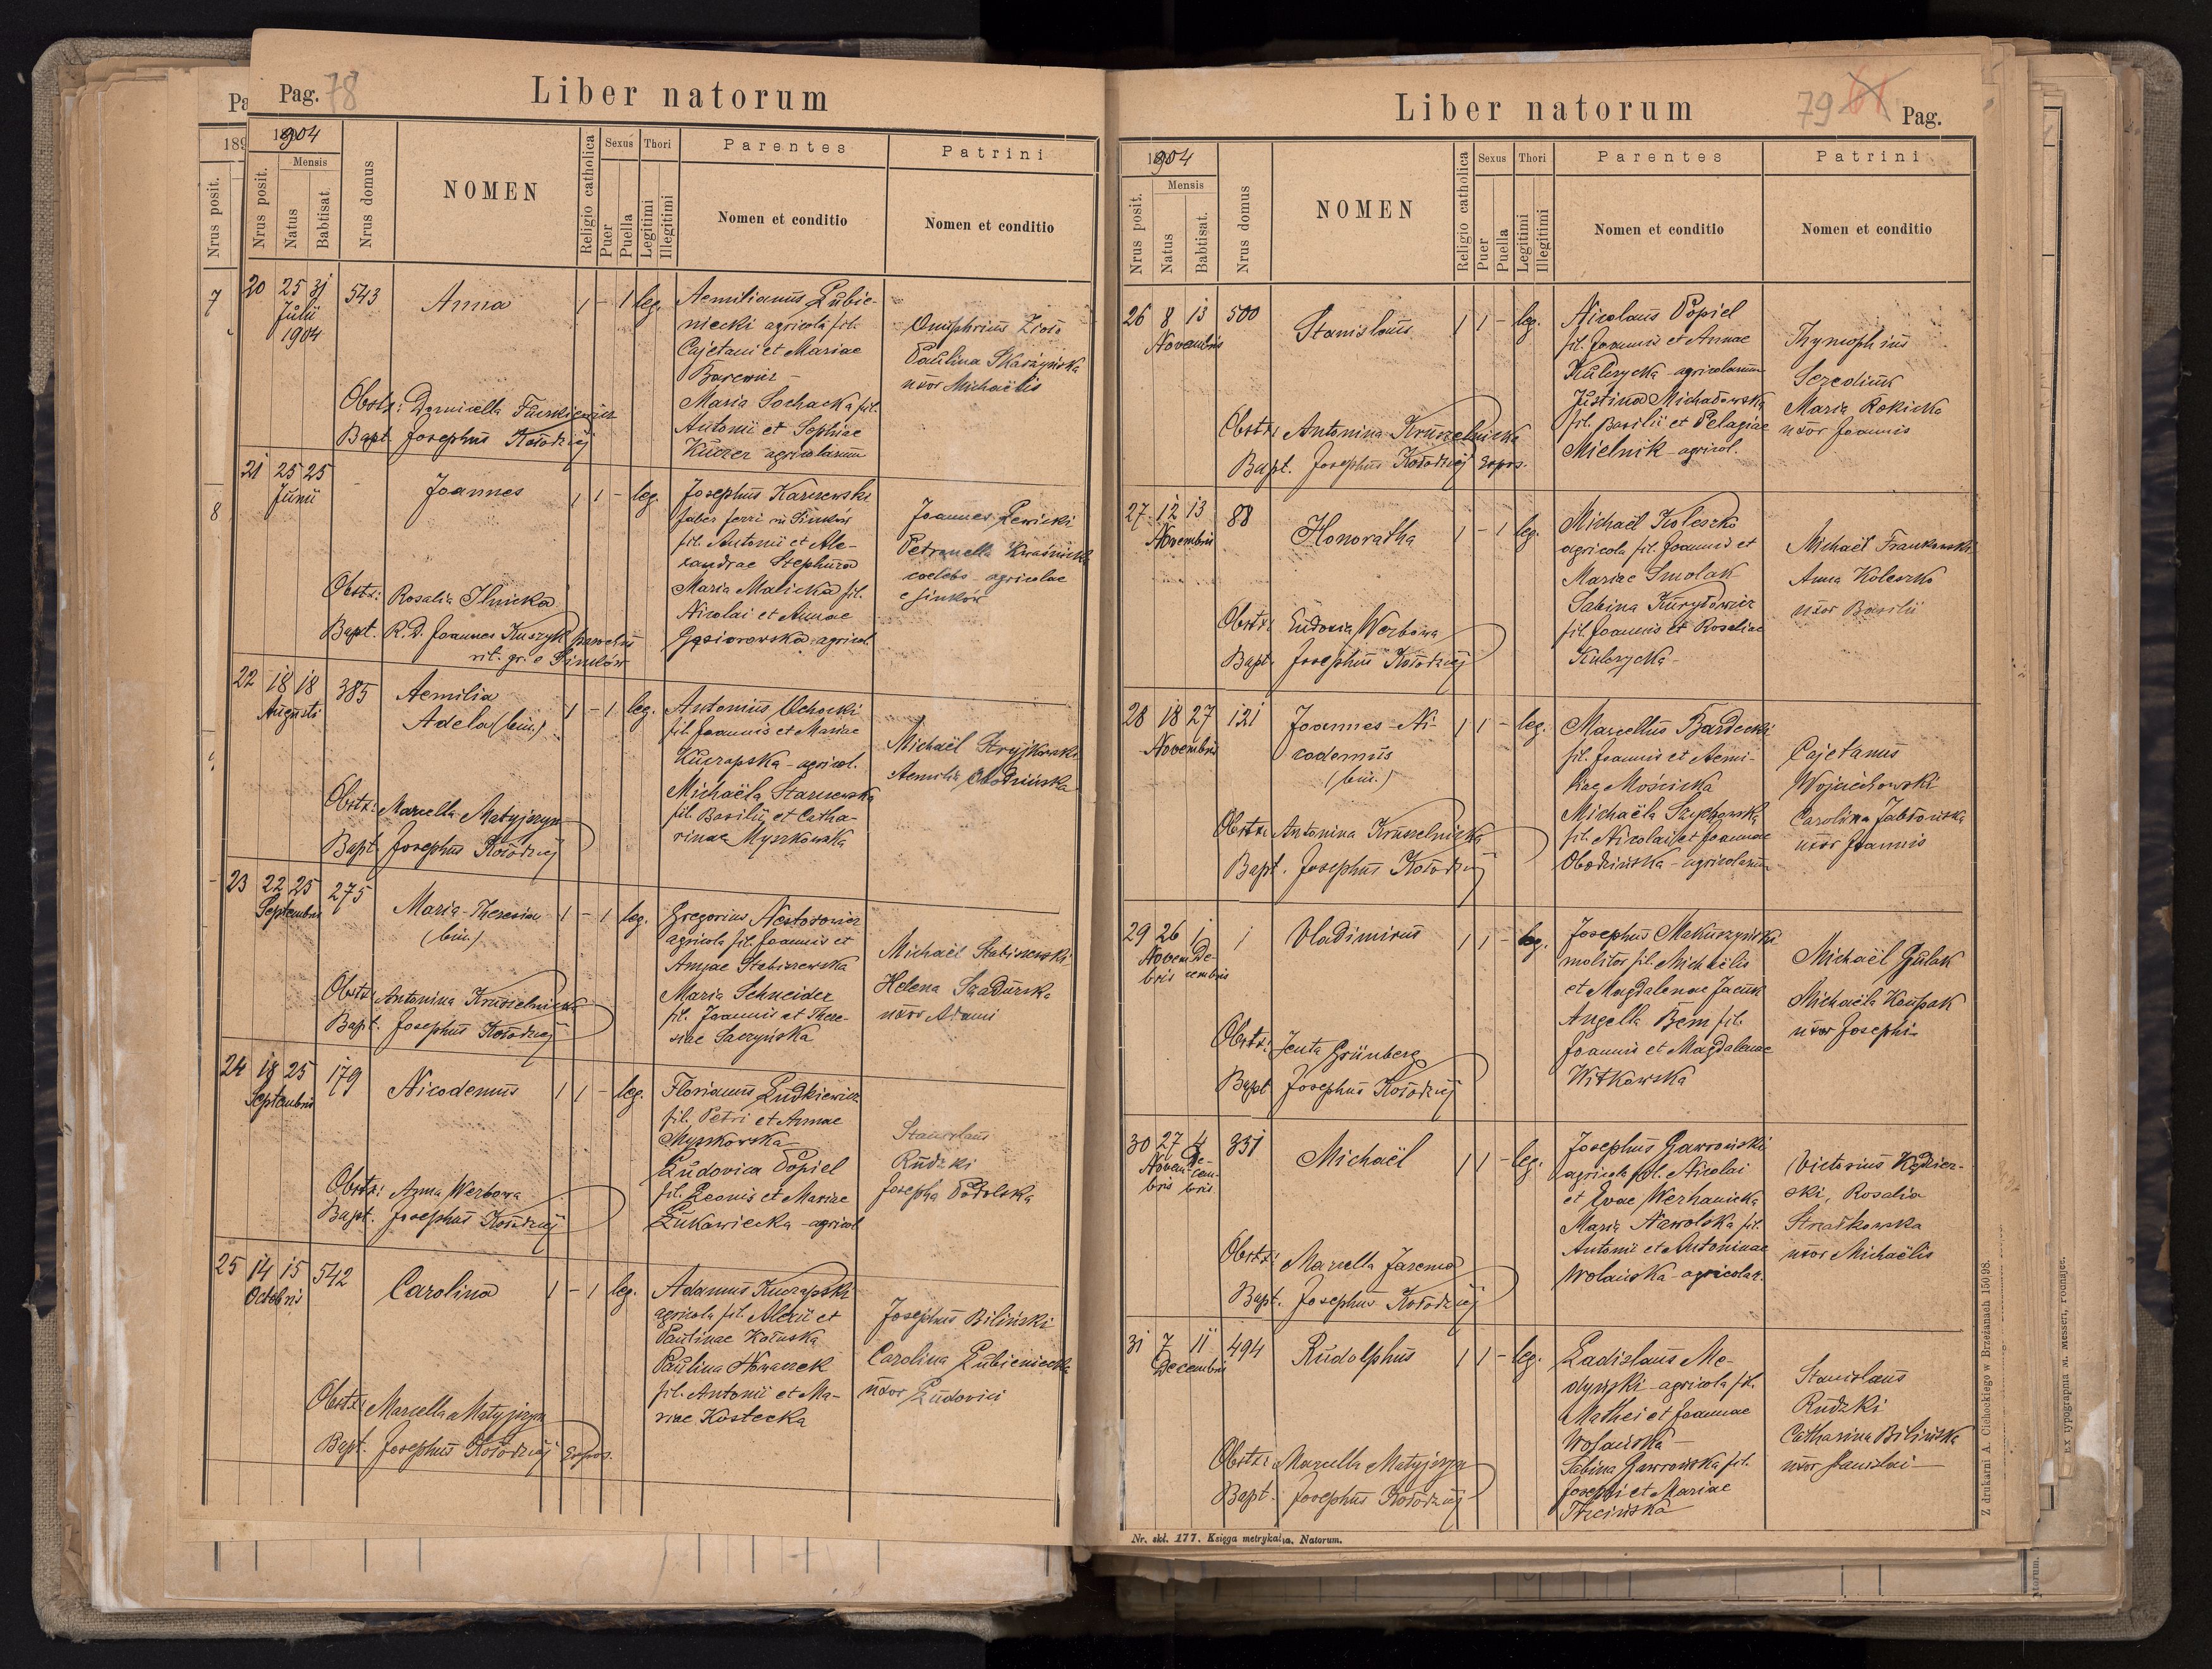 Pag. 78
Liber natorum
1904
Nrus posit.
Mensis
Natus
Babtisat
Nrus domus
NOMEN
Religio catholica
Sexus
Puer
Puella
Thori
Legitimi
Illegitimi
Parentes
Nomen et conditio
Patrini
Nomen et conditio
20 25 31 543 Anna 1 - 1 leg.
Julii
1904
Aemilianus Łubie-
niecki agricola fil.
Cajetani et Mariae
Barewicz -
Maria Sochacka fil.
Antonii et Sophiae
Kuczer agricolarum
Onuphrius
Paulina Skarżyńska
uxor Michaëlis
Obstx: Domicella
Bapt. Josephus Kołodziej
21 25 25 - Joannes 1 1 - leg.
Junii
Josephus Karczewski
faber ferri in Sinków
fil. Antonii et Ale-
xandrae
Maria Malicka fil.
Nicolai et Annae
Gąsiorowska agricol.
Joannes Lewicki
Petronella Kwaśnicka
caelebs - agricolae
e Sinków
Obstx: Rosalia Ilnicka
Bapt. R.D. Joannes Kuszyk parochus
rit. gr. e Sinków
22 18 18 385 Aemilia 1 - 1 leg.
Augusti
Adela (bin.)
Antonius Ochocki
fil. Joannis et Mariae
Kuczapska - agricol.
Michaëla Starczewska
fil. Basilii et Catha-
rinae Myszkowska
Michaël Stryjkowski
Aemilia Obodzińska
Obstx: Marcella Matyjczyn
Bapt. Josephus Kołodziej
23 22 25 275 Maria-Theresia 1 - 1 leg.
Septembris
(bin.)
Gregorius Nestorowicz
agricola fil. Joannis et
Annae Stabiszewska
Maria Schneider
fil. Joannis et There-
siae Saczyńska
Michaël Stabiszewski
Helena Szadurska
uxor Adami
Obstx: Antonina Kruszelnicka
Bapt. Josephus Kołodziej
24 18 25 179 Nicodemus 1 1 - leg.
Septembris
Florianus Ludkiewicz
fil. Petri et Annae
Myszkowska
Ludovica Popiel
fil. Leonis et Mariae
Łukawiecka - agricol
Stanislaus
Rudzki
Josepha Podolska
Obstx: Anna Werbowa
Bapt. Josephus Kołodziej
25 14 15 542 Carolina 1 - 1 leg.
Octobris
Adamus Kuczapski
agricola fil. Alexii et
Paulinae
Paulina Nowaczek
fil. Antonii et Ma-
riae Kostecka
Josephus Biliński
Carolina Łubieniecka
uxor Ludovici
Obstx: Marcella Matyjczyn
Bapt. Josephus Kołodziej Expos.
Liber natorum
79 61 Pag.
1904
Nrus posit.
Mensis
Natus
Babtisat.
Nrus domus
NOMEN
Religio catholica
Sexus
Puer
Puella
Thori
Legitimi
Illegitimi
Parentes
Nomen et conditio
Patrini
Nomen et conditio
26 8 13 500 Stanislaus 1 1 - leg.
Novembris
Nicolaus Popiel
fil. Joannis et Annae
Kulczycka - agricolarum
Justina Michałowska
fil. Basilii et Pelagiae
Mielnik - agricol.
Maria Rokicka
uxor Joannis
Obstx: Antonina Kruszelnicka
Bapt. Josephus Kołodziej Expos.
27 12 13 88 Honoratha 1 - 1 leg.
Novembris
Michaël Koleszko
agricola fil. Joannis et
Mariae Smolak
Sabina Kuryłowicz
fil. Joannis et Rosaliae
Kulczycka -
Michaël Frankowski
Anna Koleszko
uxor Basilii
Obstx: Eudoxia Werbowa
Bapt. Josephus Kołodziej
28 18 27 121 Joannes-Ni- 1 1 - leg.
Novembris
codemus
(bin.)
Marcellus Bardecki
fil. Joannis et Aemi-
liae Mościcka
Michaëla Szychowska
fil. Nicolai et Joannae
Obodzińska - agricolarum
Cajetanus
Wojciechowski
Carolina Jabłońska
uxor Joannis
Obstx: Antonina Kruszelnicka
Bapt. Josephus Kołodziej
29 26 1 1 Vladimirus 1 1 - leg.
Novem- De-
bris cembris
Josephus Makuszyński
molitor fil. Michaëlis
et Magdalenae Jacuk
Angella Bem fil.
Joannis et Magdalenae
Witkowska
Michaël Gulak
Michaëla Koupak
uxor Josephi -
Obstx: Jenta Grünberg
Bapt Josephus Kołodziej
30 27 4 351 Michaël 1 1 - leg.
Novem- De-
bris cem-
bris
Josephus Gawroński
agricola fil. Nicolai
et Evae Werhanicka
Maria Nawolska fil.
Antonii et Antoninae
Wolańska - agricolar.
Victorius Kędzier-
ski, Rosalia
Straszkowska
uxor Michaëlis
Obstx: Marcella Jarema
Bapt. Josephus Kołodziej
31 7 11 494 Rudolphus 1 1 - leg.
Decembris
Ladislaus Me-
dyński - agricola fil.
Mathei et Joannae
Wolańska -
Sabina Gawrońska fil.
Josephi et Mariae
Trzcińska
Stanislaus
Rudzki
Catharina Bilińska
uxor Stanislai -
Obstx: Marcella Matyjczyn
Bapt. Josephus Kołodziej
Nr. skł. 177. Księga metrykalna. Natorum.
Z drukarni A. Cichockiego w Brzeżanach 150/98.